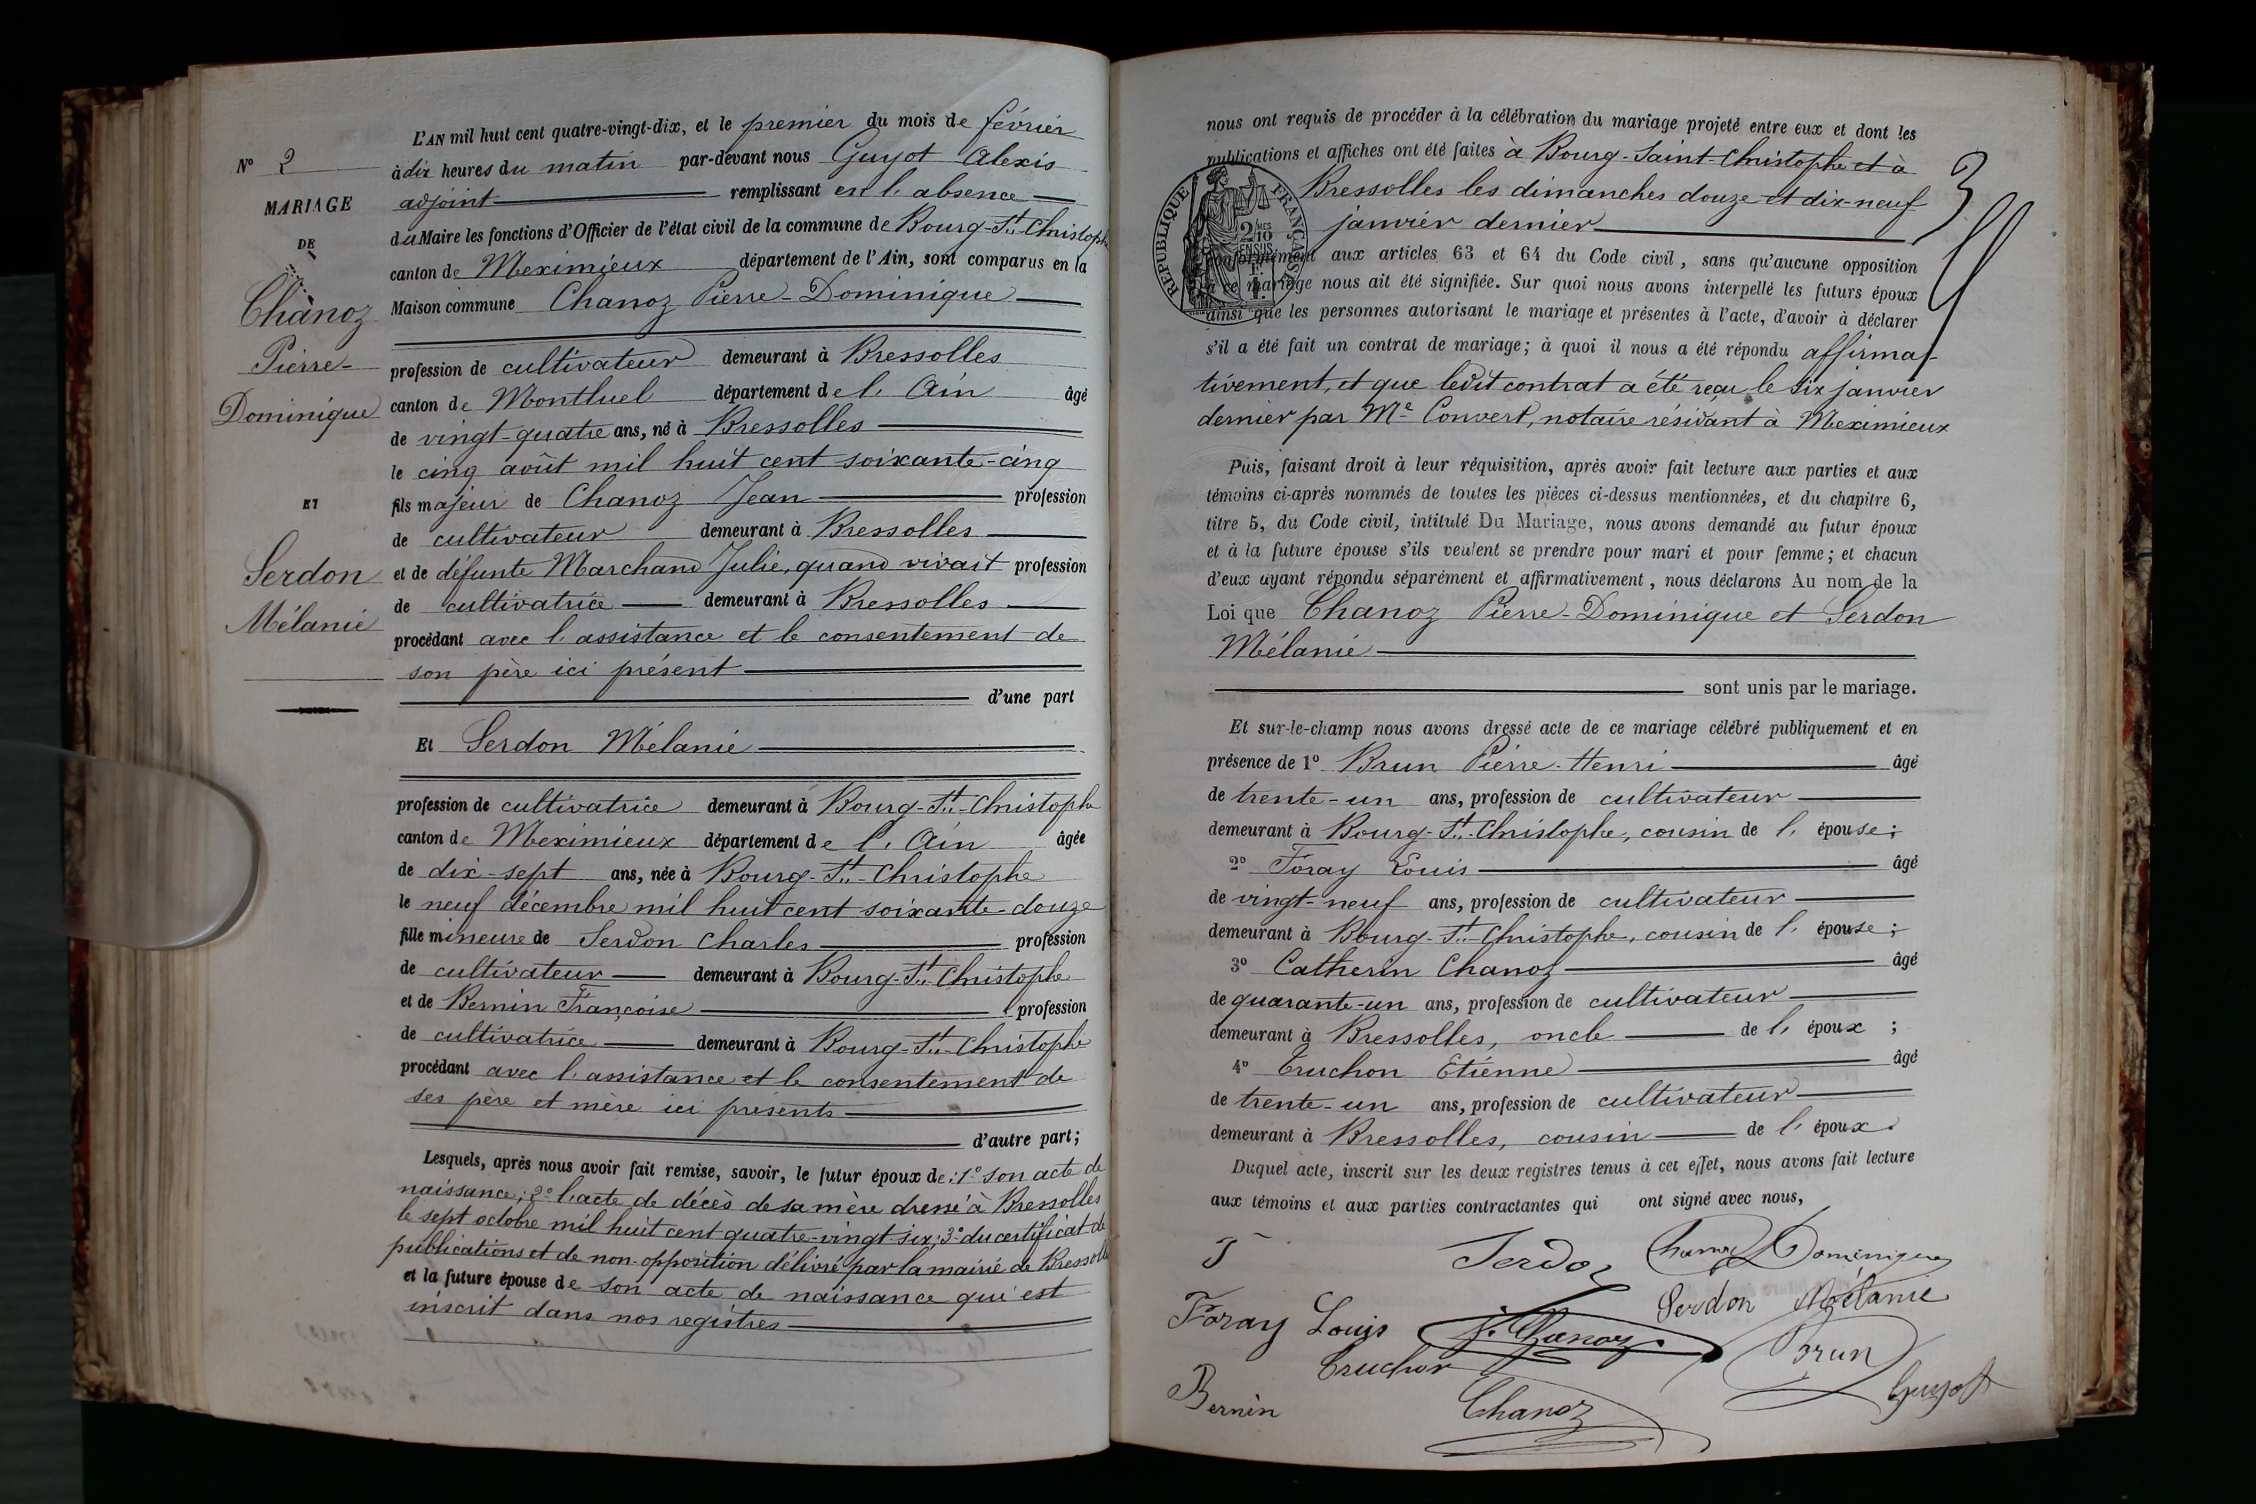 L'AN mil huit cent quatre-vingt-dix, et le premier du mois de février
à dix heures du matin par-devant nous Guyot Alexis
adjoint remplissant en l'absence
du Maire les fonctions d'Officier de l'état civil de la commune de Bourg-St-Christophe
canton de Meximieux département de l'Ain, sont comparus en la
Maison commune Chanoz Pierre-Dominique
profession de cultivateur demeurant à Bressolles
canton de Montluel département de l'Ain âgé
de vingt-quatre ans, né à Bressolles
le cinq août mil huit cent soixante-cinq
fils majeur de Chanoz Jean profession
de cultivateur demeurant à Bressolles
et de défunte Marchand Julie, quand vivait profession
de cultivatrice demeurant à Bressolles
procédant avec l'assistance et le consentement de
son père ici présent
d'une part
Et Serdon Mélanie
profession de cultivatrice demeurant à Bourg-St-Christophe
canton de Meximieux département de l'Ain âgée
de dix-sept ans, née à Bourg-St-Christophe
le neuf décembre mil huit cent soixante-douze
fille mineure de Serdon Charles profession
de cultivateur demeurant à Bourg-St-Christophe
et de Bernin Françoise profession
de cultivatrice demeurant à Bourg-St-Christophe
procédant avec l'assistance et le consentement de
ses père et mère ici présents
d'autre part;
Lesquels, après nous avoir fait remise, savoir, le futur époux de: 1° son acte de
naissance; 2° l'acte de décès de sa mère dressé à Bressolles
le sept octobre mil huit cent quatre-vingt-six; 3° du certificat de
publications et de non-opposition délivré par la mairie de Bressolles
et la future épouse de son acte de naissance qui est
inscrit dans nos registres
N° 2
MARIAGE
DE
Chanoz
Pierre-
Dominique
ET
Serdon
Mélanie
nous ont requis de procéder à la célébration du mariage projeté entre eux et dont les
publications et affiches ont été faites à Bourg-Saint-Christophe et à
Bressolles les dimanches douze et dix-neuf
janvier dernier
conformément aux articles 63 et 64 du Code civil, sans qu'aucune opposition
à ce mariage nous ait été signifiée. Sur quoi nous avons interpellé les futurs époux
ainsi que les personnes autorisant le mariage et présentes à l'acte, d'avoir à déclarer
s'il a été fait un contrat de mariage; à quoi il nous a été répondu affirma-
tivement, et que ledit contrat a été reçu le six janvier
dernier par Me Convert, notaire résidant à Meximieux
RÉPUBLIQUE FRANÇAISE
2/10 EN SUS
Puis, faisant droit à leur réquisition, après avoir fait lecture aux parties et aux
témoins ci-après nommés de toutes les pièces ci-dessus mentionnées, et du chapitre 6,
titre 5, du Code civil, intitulé Du Mariage, nous avons demandé au futur époux
et à la future épouse s'ils veulent se prendre pour mari et pour femme; et chacun
d'eux ayant répondu séparément et affirmativement, nous déclarons Au nom de la
Loi que Chanoz Pierre-Dominique et Serdon
Mélanie
sont unis par le mariage.
Et sur-le-champ nous avons dressé acte de ce mariage célébré publiquement et en
présence de 1° Brun Pierre-Henri âgé
de trente-un ans, profession de cultivateur
demeurant à Bourg-St-Christophe, cousin de l'épouse;
2° Foray Louis âgé
de vingt-neuf ans, profession de cultivateur
demeurant à Bourg-St-Christophe, cousin de l'épouse;
3° Catherin Chanoz âgé
de quarante-un ans, profession de cultivateur
demeurant à Bressolles, oncle de l'époux;
4° Truchon Etienne âgé
de trente-un ans, profession de cultivateur
demeurant à Bressolles, cousin de l'époux.
Duquel acte, inscrit sur les deux registres tenus à cet effet, nous avons fait lecture
aux témoins et aux parties contractantes qui ont signé avec nous,
Serdon Chanoz Dominique
Serdon Mélanie
Foray Louis J. Chanoz
Truchon Brun
Guyot
Bernin Chanoz